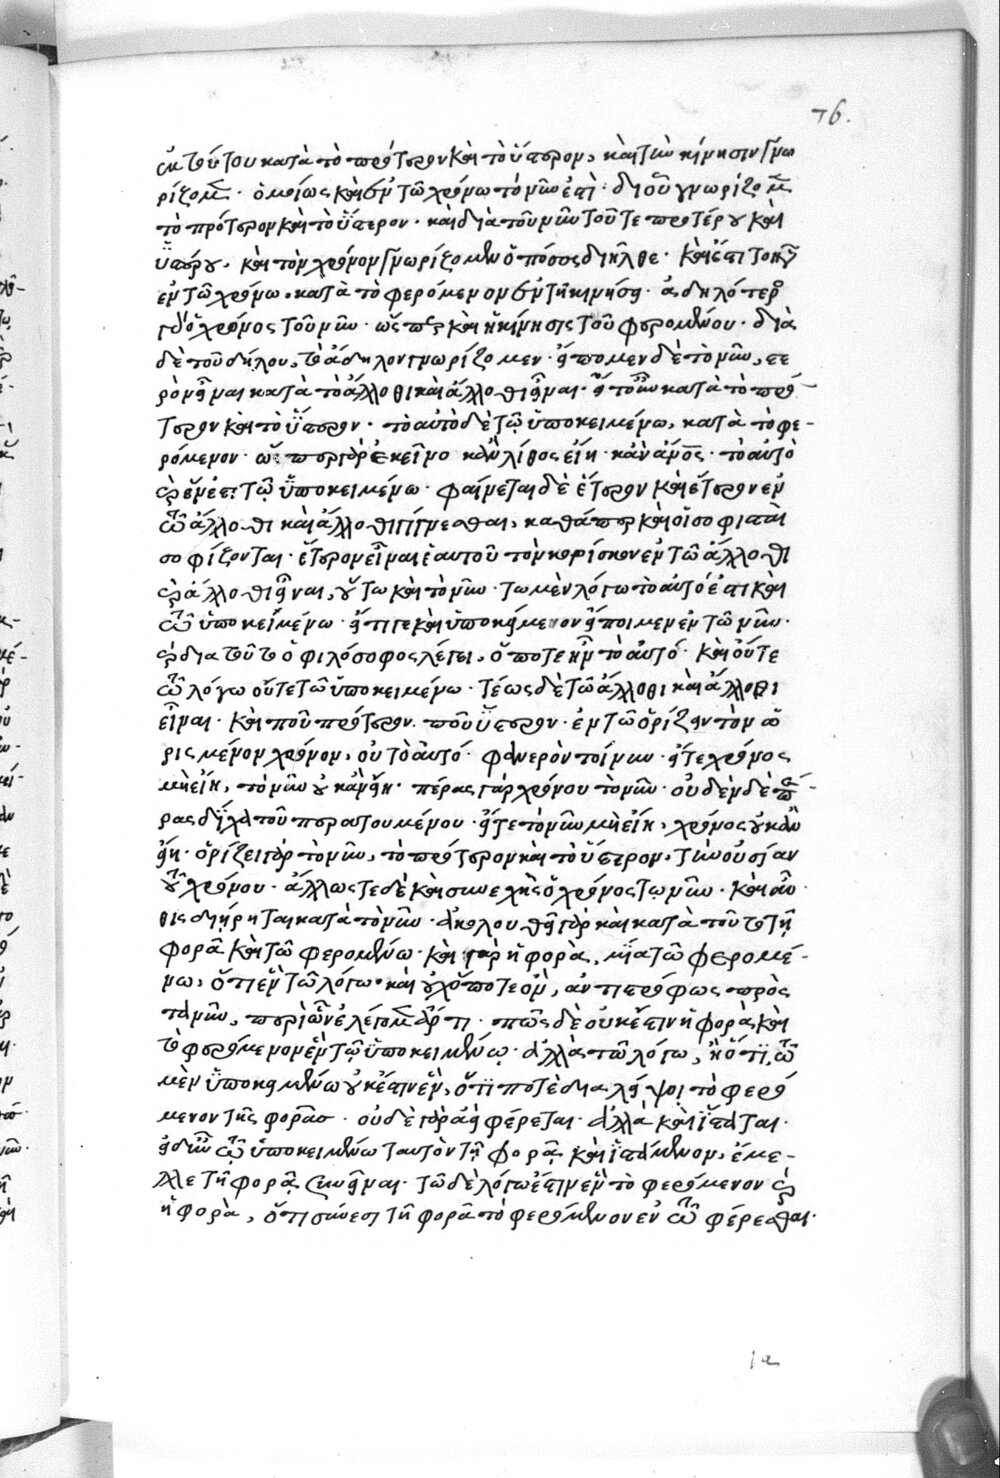 76.
ἐκ τούτου κατὰ τὸ πρότερον καὶ τὸ ὕστερον, καὶ τὴν κίνησιν γνω
ρίζομεν. ὁμοίως καὶ ἐν τῶ χρόνω τὸ νῦν ἐστὶ. διὸ γνωρίζομεν
τὸ πρότερον καὶ τὸ ὕστερον. καὶ διὰ τοῦ νῦν τοῦ τε προτέρου καὶ
ὑστέρου, καὶ τὸν χρόνον γνωρίζομεν ὁπόσος διῆλθε. καὶ ἔστι τὸ νῦν
ἐν τῶ χρόνω, κατὰ τὸ φερόμενον ἐν τῆ κινήσει. ἀδηλότερος
γὰρ ὁ χρόνος τοῦ νῦν. ὥσπερ καὶ ἡ κίνησις τοῦ φερομένου. διὰ
δὲ τοῦ δήλου, τὸ ἄδηλον γνωρίζομεν. εἴπομεν δὲ τὸ νῦν, ἕτε
ρον εἶναι κατὰ τὸ ἄλλοθι καὶ ἄλλοθι εἶναι. ἤτοι κατὰ τὸ πρό-
τερον καὶ τὸ ὕστερον. τὸ αὐτὸ δὲ τῶ ὑποκειμένω, κατὰ τὸ φε-
ρόμενον. ὥσπερ γὰρ ἐκεῖνο κἂν λίθος εἴη. κἂν ἄνθρωπος. τὸ αὐτὸ
μέν ἐστι τῶ ὑποκειμένω. φαίνεται δὲ ἕτερον καὶ ἕτερον ἐν
τῶ ἄλλοθι καὶ ἄλλοθι γίγνεσθαι, καθάπερ καὶ οἱ σοφισταὶ
σοφίζονται. ἕτερον εἶναι ἑαυτοῦ τὸν κορίσκον ἐν τῶ ἄλλοθι
καὶ ἄλλοθι εἶναι, οὕτω καὶ τὸ νῦν. τῶ μὲν λόγω τὸ αὐτό ἐστι καὶ
τῶ ὑποκειμένω. εἴ τι γε καὶ ὑποκείμενον εἴποιμεν ἐν τῶ νῦν.
καὶ διὰ τοῦτο ὁ φιλόσοφος λέγει, ὅ ποτε ἦν τὸ αὐτό. καὶ οὔτε
τῶ λόγω οὔτε τῶ ὑποκειμένω. τέως δὲ τῶ ἄλλοθι καὶ ἄλλοθι
εἶναι. καὶ ποῦ πρότερον. ποῦ ὕστερον. ἐν τῶ ὁρίζειν τὸν ὡ
ρισμένον χρόνον, οὐ τὸ αὐτό. φανερὸν τοίνυν. εἴτε χρόνος
μὴ εἴη, τὸ νῦν οὐκ ἂν εἴη. πέρας γὰρ χρόνου τὸ νῦν. οὐδὲν δὲ πέ-
ρας δίχα τοῦ περατουμένου. εἴτε τὸ νῦν μὴ εἴη, χρόνος οὐκ ἂν
εἴη. ὁρίζει γὰρ τὸ νῦν, τὸ πρότερον καὶ τὸ ὕστερον, τὴν οὐσίαν
τοῦ χρόνου. ἄλλως τε δὲ καὶ συνεχὴς ὁ χρόνος τῶ νῦν. καὶ αὖ
θις διήρηται κατὰ τὸ νῦν. ἀκολουθεῖ γὰρ καὶ κατὰ τοῦτο τῆ
φορᾶ καὶ τῶ φερομένω. καὶ γὰρ ἡ φορὰ, μία τῶ φερομέ-
νω, ὅτι ἓν τῶ λόγω. καὶ οὐχ ὅ ποτε ὂν, ἀντιστρόφως πρὸς
τὸ νῦν, περὶ ὧν ἐλέγομεν ἄρτι. πῶς δὲ οὐκ ἔστιν ἡ φορὰ καὶ
τὸ φερόμενον ἓν τῶ ὑποκειμένω. ἀλλὰ τῶ λόγω, ἢ ὅτι τῶ
μὲν ὑποκειμένω οὐκ ἔστιν ἓν, ὅτι ποτὲ διαλείψοι τὸ φερό
μενον τῆς φορᾶς. οὐδὲ γὰρ ἀεὶ φέρεται. ἀλλὰ καὶ ἵσταται.
εἰ δ' ἦν τῶ ὑποκειμένω ταυτὸν τῆ φορᾶ καὶ ἱστάμενον, ἔμε-
λλε τῆ φορᾶ συνεῖναι. τῶ δὲ λόγω ἔστιν ἓν τὸ φερόμενον καὶ
ἡ φορὰ, ὅτι σύνεστι τῆ φορᾶ τὸ φερόμενον ἐν τῶ φέρεσθαι.